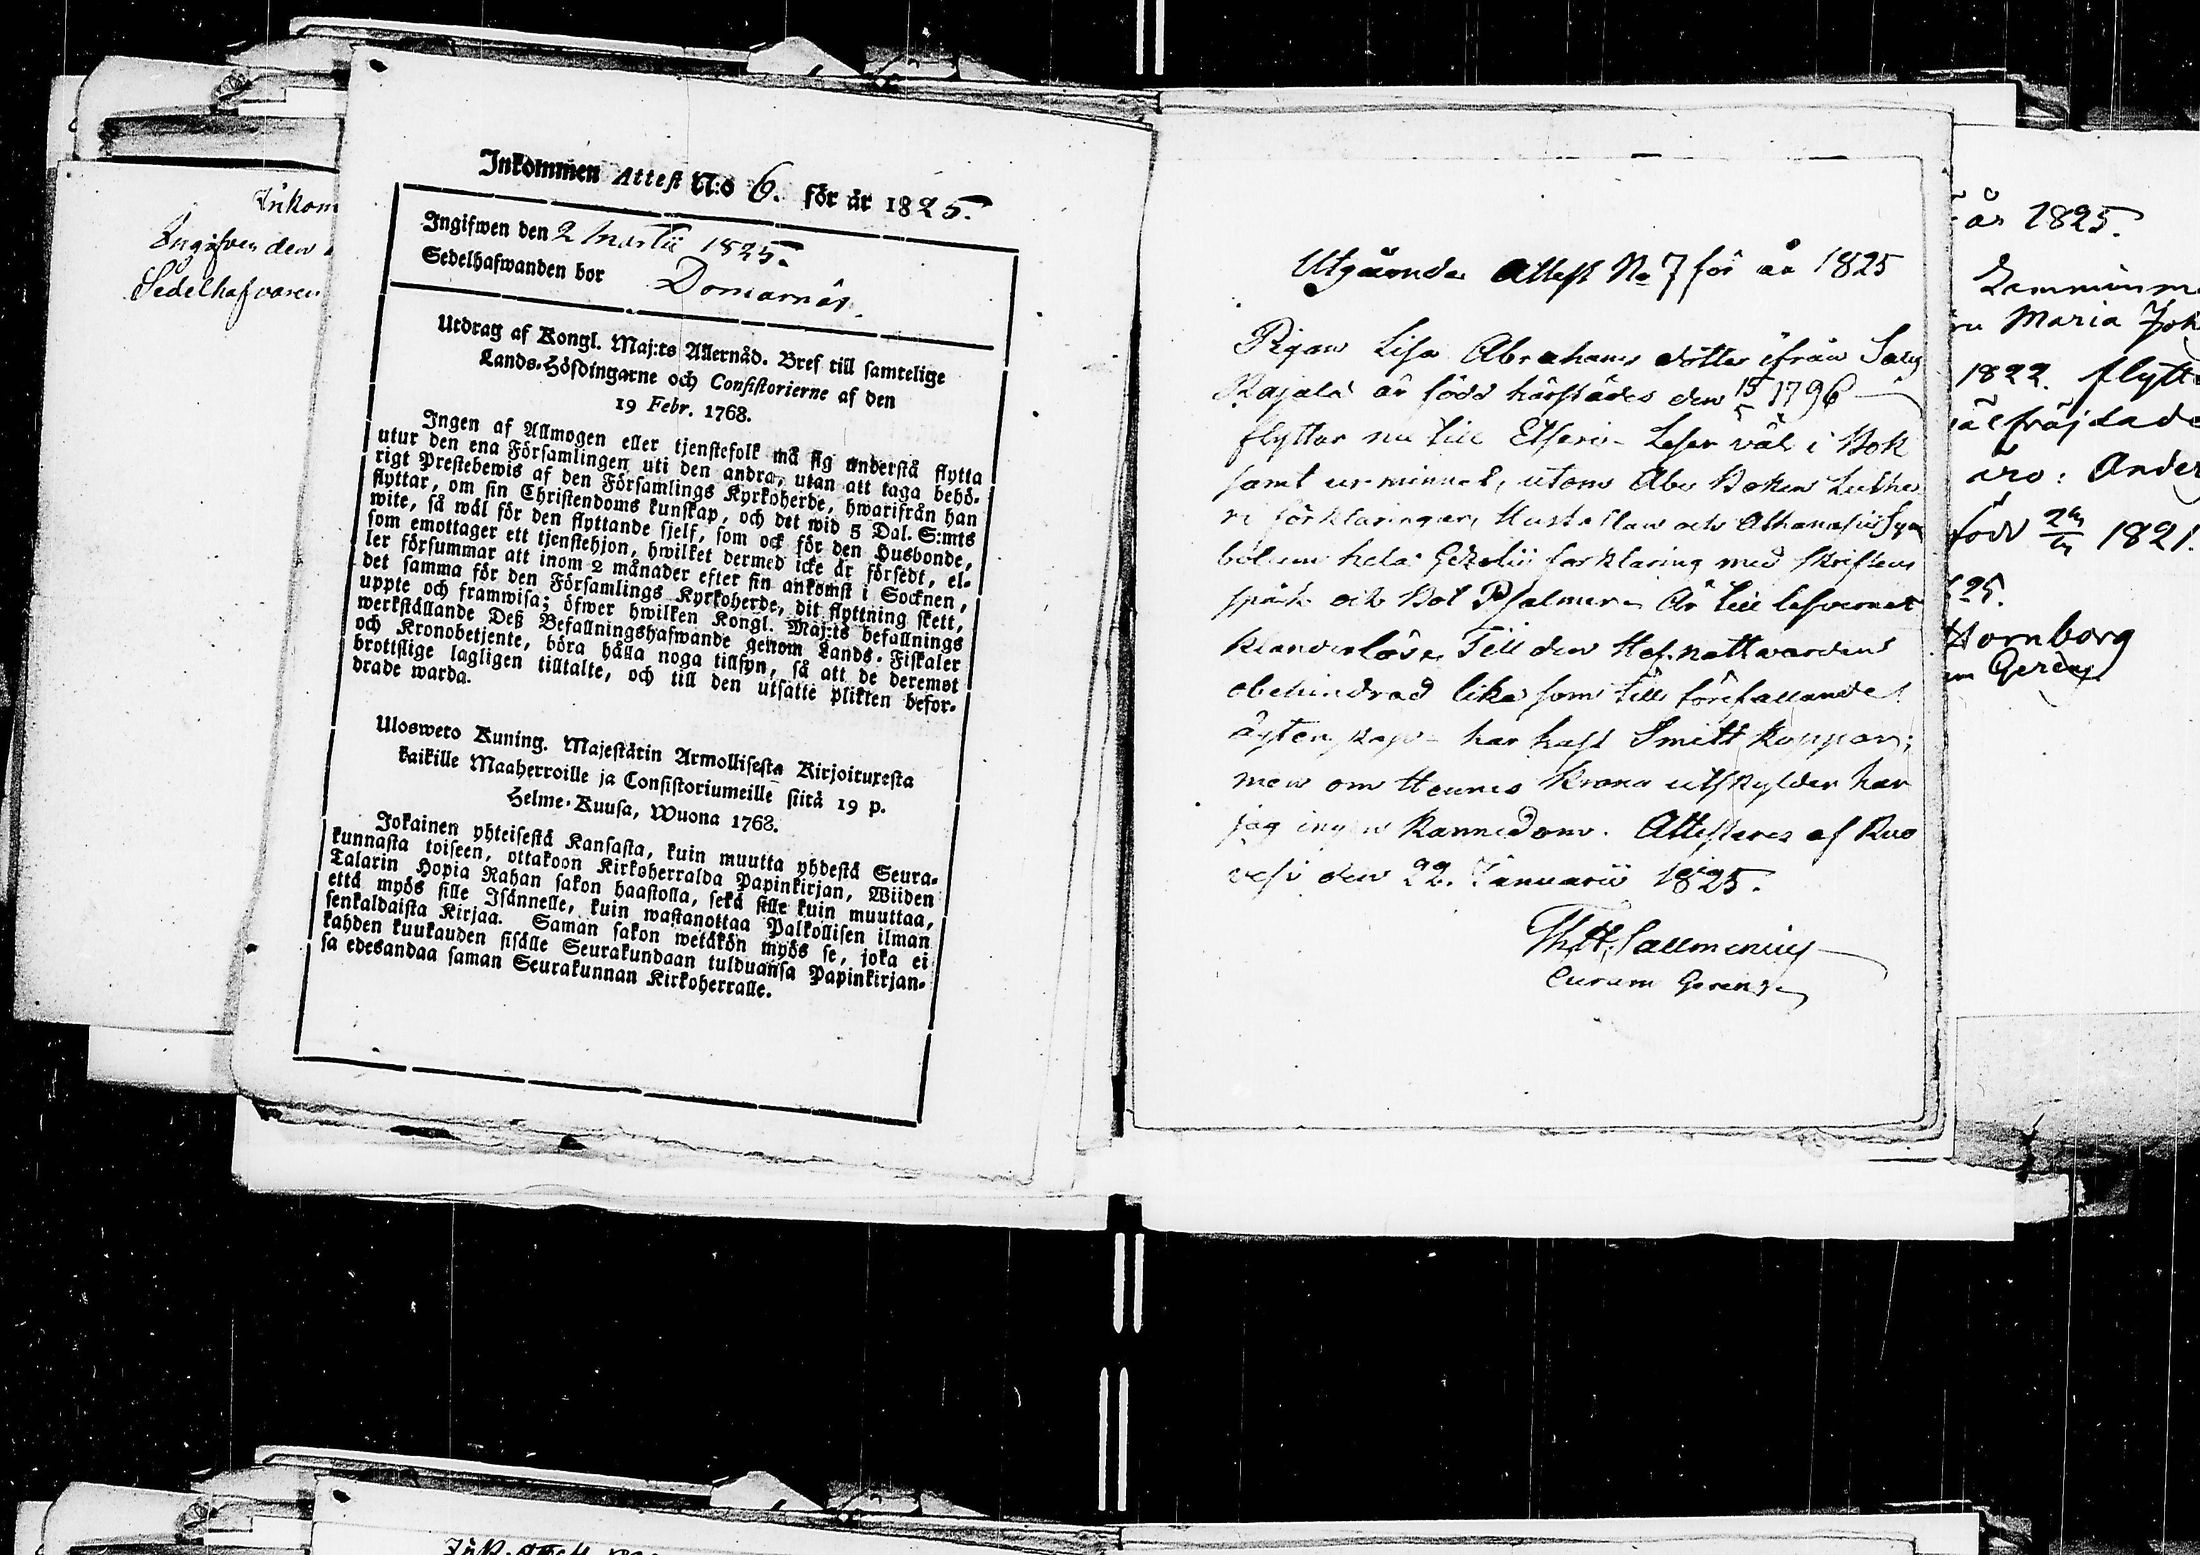 Inkom
Ingifven den
Sedelhafvaren
Inkommen Attest N:o 6. för år 1825.
Ingifwen den 2 Martii 1825.
Sedelhafwanden bor Domarnäs.
Utdrag af Kongl. Maj:ts Allernåd. Bref till samtelige
Lands-Höfdingarne och Consistorierne af den
19 Febr. 1768.
Ingen af Allmogen eller tjenstefolk må sig understå flytta
utur den ena Församlingen uti den andra, utan att taga behö-
rigt Prestebewis af den Församlings Kyrkoherde, hwarifrån han
flyttar, om sin Christendoms kunskap, och det wid 5 Dal. S:mts
wite, så wäl för den flyttande sjelf, som ock för den Husbonde,
som emottager ett tjenstehjon, hwilket dermed icke är försedt, el-
ler försummar att inom 2 månader efter sin ankomst i Socknen,
det samma för den Församlings Kyrkoherde, dit flyttning skett,
uppte och framwisa; öfwer hwilken Kongl. Maj:ts befallnings
werkställande Deß Befallningshafwande genom Lands-Fiskaler
och Kronobetjente, böra hålla noga tillsyn, så att de deremot
brottslige lagligen tilltalte, och till den utsatte plikten befor-
drade warda.
Uloswero Kuning. Majestätin Armollisesta Kirjoituxesta
kaikille Maaherroille ja Consistoriumeille siitä 19 p.
Helme-Kuusa, Wuona 1768.
Jokainen yhteisestä Kansasta, kuin muutta yhdestä Seura-
kunnasta toiseen, ottakoon Kirkoherralda Papinkirjan, Wiiden
Talarin Hopia Rahan sakon haastolla, sekä sille kuin muuttaa,
että myös sille Isännelle, kuin wastanottaa Palkollisen ilman
senkaldaista Kirjaa. Saman sakon wetäkön myös se, joka ei
kahden kuukauden sisälle Seurakundaan tulduansa Papinkirjan-
sa edesandaa saman Seurakunnan Kirkoherralle.
Utgående Attest No 7 för år 1825
Pigan Lisa Abrahams dotter ifrån
Rajala är född härstädes den 15/5 1796
flyttar nu till Etseri. Leser väl i Bok
samt ur minnet, utom Abc Boken Luthe
ri förklaringar, Hustaflan och Athanasii Sym
bolum hela Gezelii forklaring med skriftens
språk och Bot Psalmer. Är till lefvernet
klanderlös, Till den H. nattvarden
obehindrad lika som till förefallande
ägtenskap. har haft Smitt koppor;
men om Hennes Krono utskylder har
jag ingen kännedom. Attesteras af Ruo
vesi den 22. Januarii 1825.
Th. H. Sallmenius
Curam Gerens
år 1825.
Maria Joh
1822. flytt
fräjdade
äro: Ander
född 1821.
25.
Hornborg
Gerens